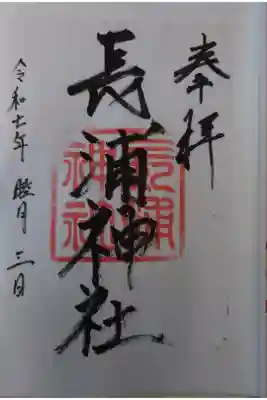 奉拝
長浦神社
長浦
神社
令和七年 睦月 三日